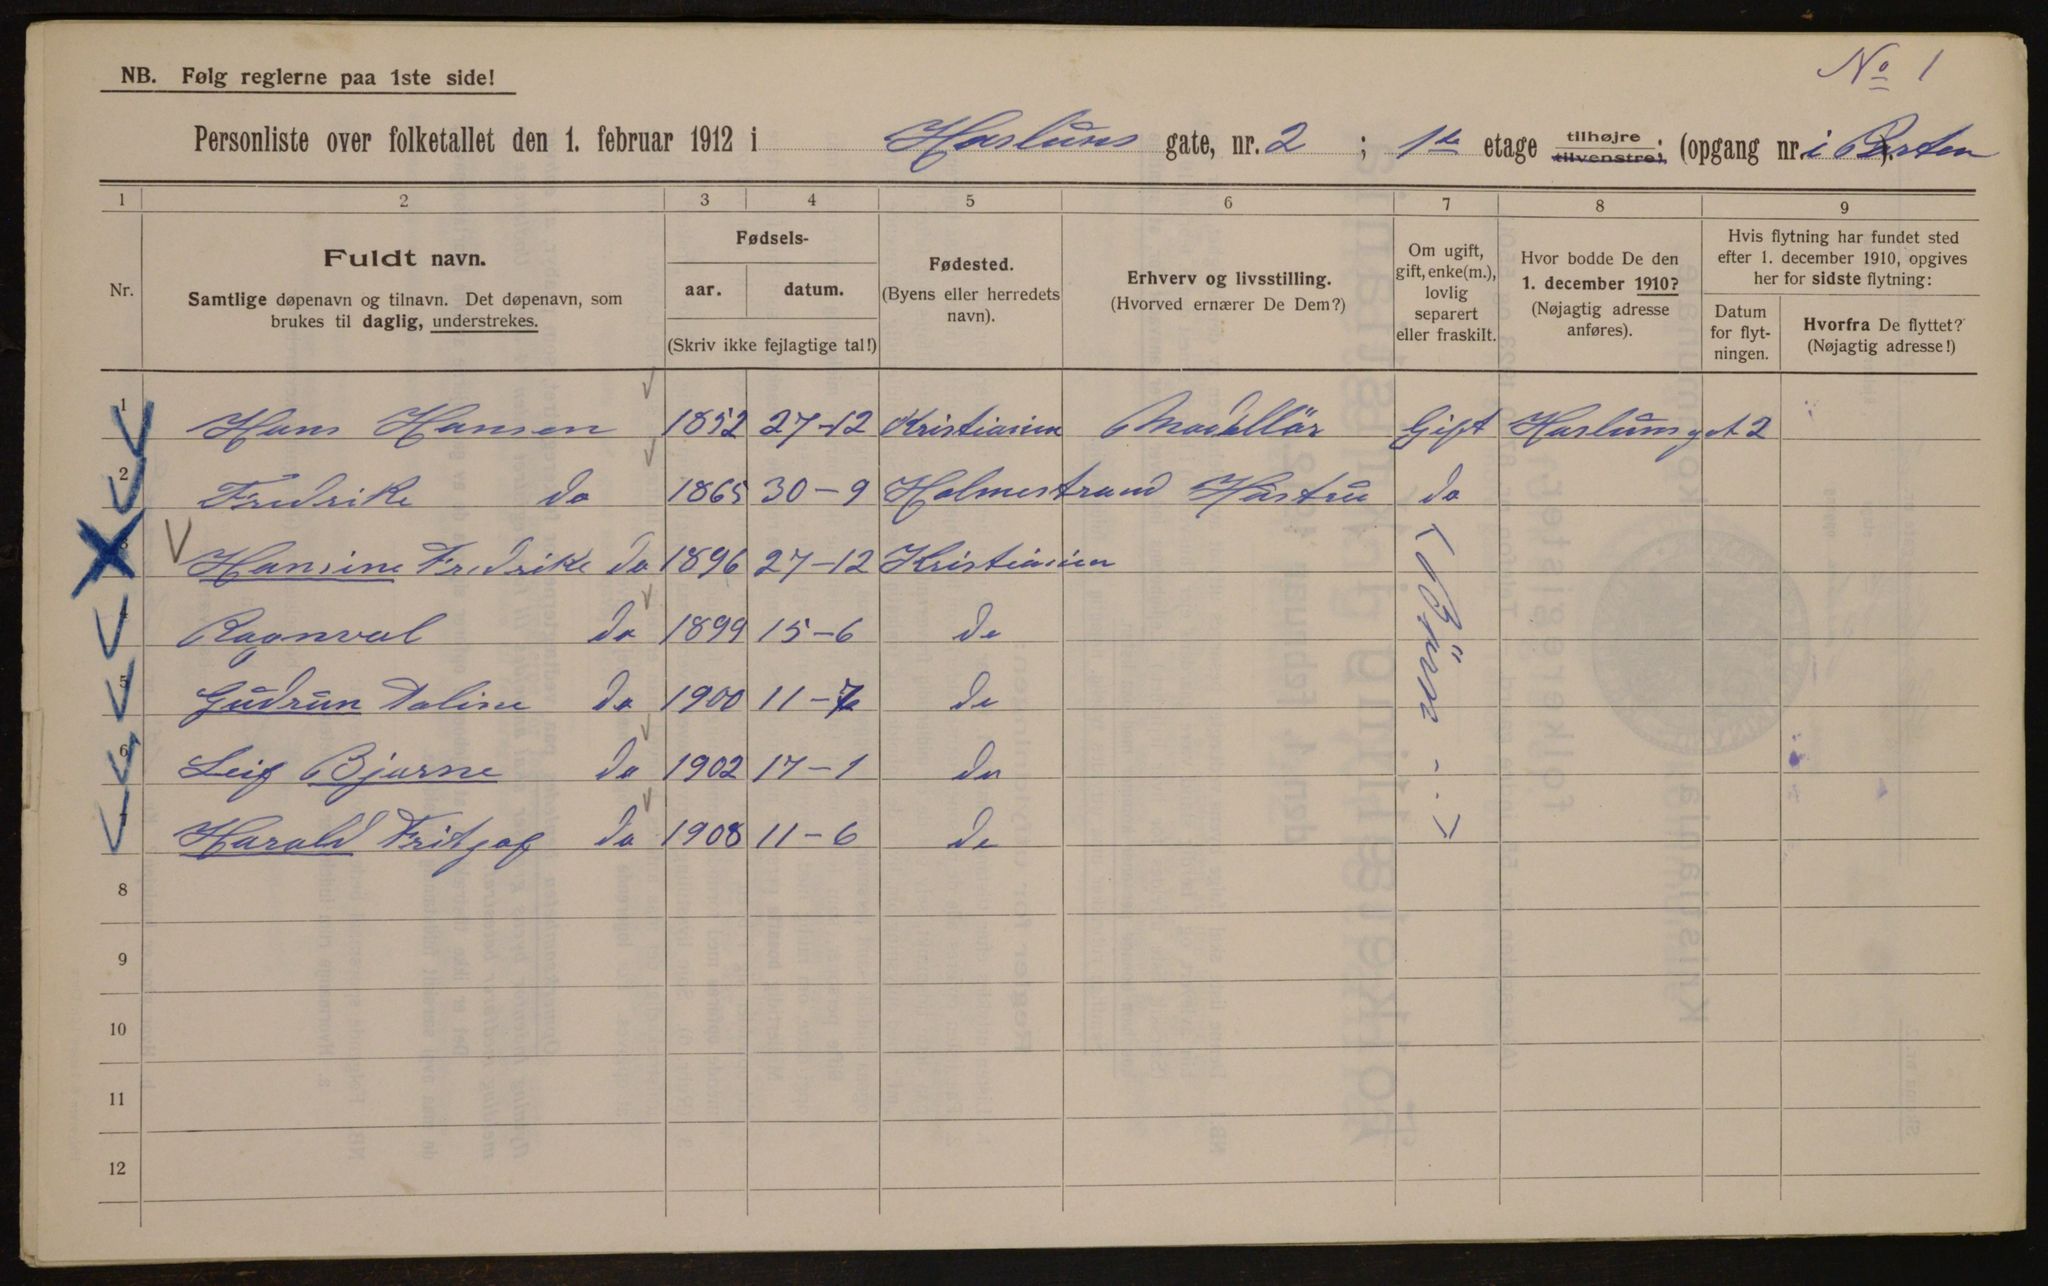 No 1
NB. Følg reglerne paa 1ste side!
Personliste over folketallet den 1. februar 1912 i Haslums gate, nr. 2 ; 1ste etage tilhøjre tilvenstre; (opgang nr. i Porten).
1 2 3 4 5 6 7 8 9
Nr.
Fuldt navn.
Samtlige døpenavn og tilnavn. Det døpenavn, som
brukes til daglig, understrekes.
Fødsels-
aar. datum.
(Skriv ikke fejlagtige tal!)
Fødested.
(Byens eller herredets
navn).
Erhverv og livsstilling.
(Hvorved ernærer De Dem?)
Om ugift,
gift, enke(m.),
lovlig
separert
eller fraskilt.
Hvor bodde De den
1. december 1910?
(Nøjagtig adresse
anføres).
Hvis flytning har fundet sted
efter 1. december 1910, opgives
her for sidste flytning:
Datum
for flyt-
ningen.
Hvorfra De flyttet?
(Nøjagtig adresse!)
1 Hans Hansen 1852 27-12 Kristianien Modellör Gift Haslumsgt 2
2 Fredrike do 1865 30-9 Holmestrand Hustru do
3 Hansine Fredrike do 1896 27-12 Kristianien
4 Ragnval do 1899 15-6 do
5 Gudrun Paline do 1900 11-7 do
6 Leif Bjarne do 1902 17-1 do
7 Harald Fritjof do 1908 11-6 do
Börn
8
9
10
11
12